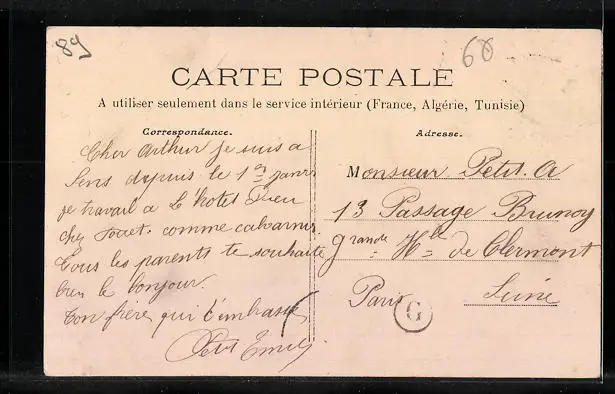 89
60
CARTE POSTALE
A utiliser seulement dans le service intérieur (France, Algérie, Tunisie)
Correspondance.
Cher Arthur je suis a
Sens depuis le 1er janv
je travail a L'hotel Dieu
chez comme
tous les parents te souhaite
bien le bonjour.
Ton frère qui t'embrasse
Petit Emile
Adresse.
Monsieur Petit. A
13 Passage Brunoy
Grande Hle de Clermont
Paris Seine
G